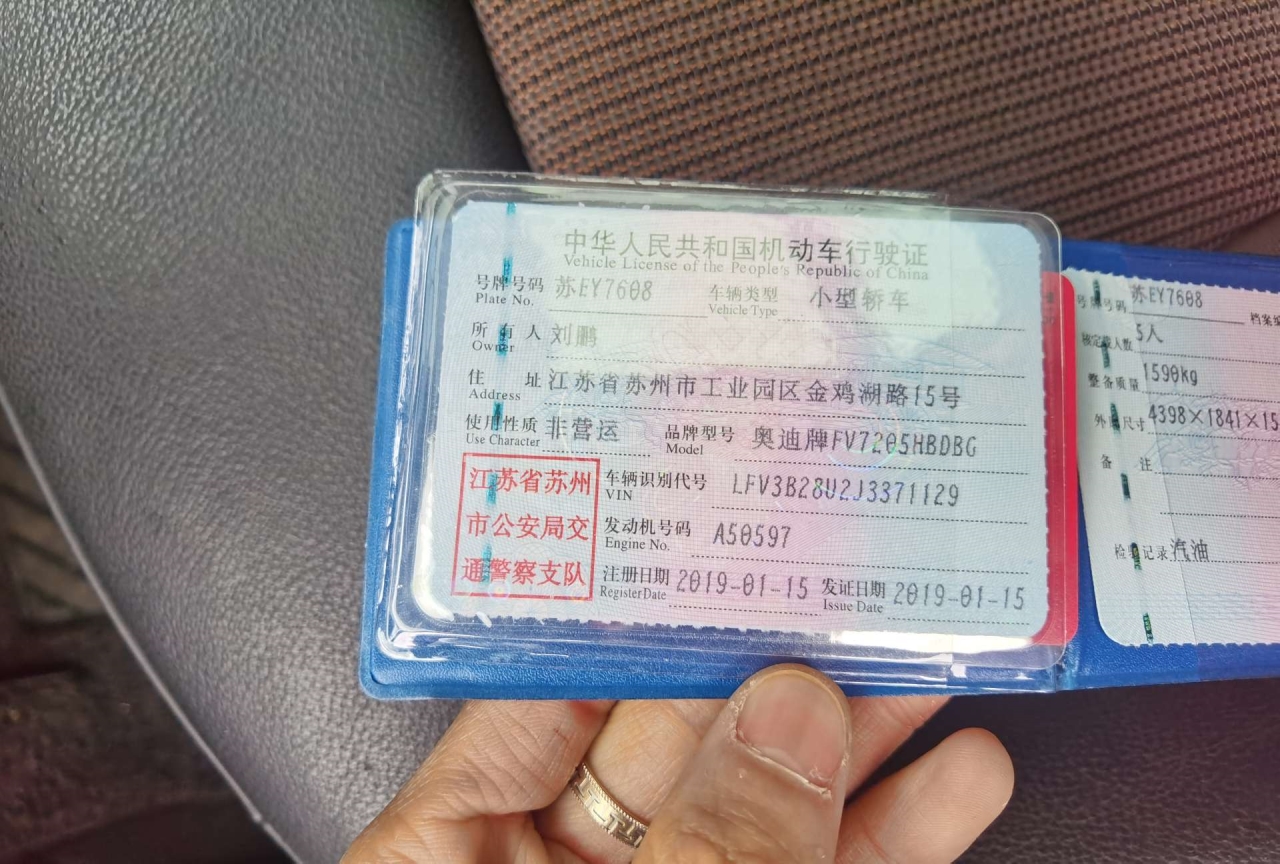 中华人民共和国机动车行驶证
Vehicle License of the People's Republic of China
号牌号码 苏EY7608 车辆类型 小型轿车
Plate No. Vehicle Type
所有人 刘鹏
Owner
住址 江苏省苏州市工业园区金鸡湖路15号
Address
使用性质 非营运 品牌型号 奥迪牌FV7205HBDBG
Use Character Model
江苏省苏州
市公安局交
通警察支队
车辆识别代号 LFV3B28U2J3371129
VIN
发动机号码 A50597
Engine No.
注册日期 2019-01-15 发证日期 2019-01-15
Register Date Issue Date
号牌号码 苏EY7608 档案编
核定载人数 5人
整备质量 1590kg
外廓尺寸 4398×1841×15
备注
检验记录 汽油